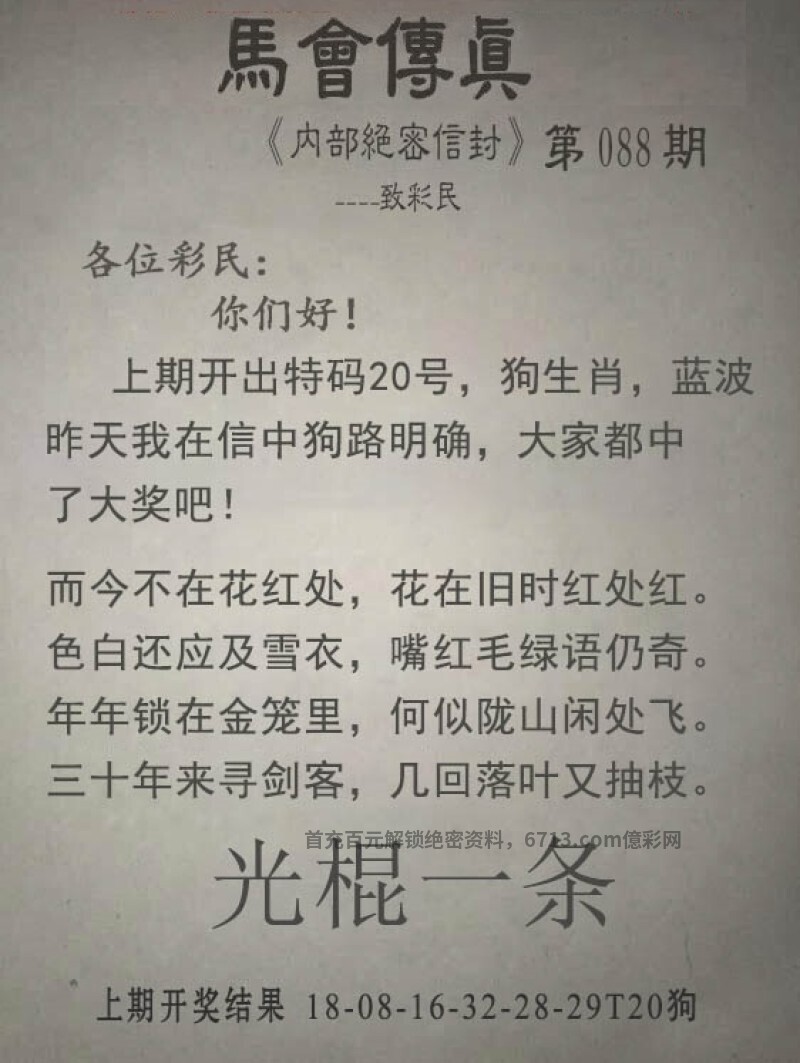 馬會傳眞
《内部絕密信封》第088期
----致彩民
各位彩民：
你们好！
上期开出特码20号，狗生肖，蓝波
昨天我在信中狗路明确，大家都中
了大奖吧！
而今不在花红处，花在旧时红处红。
色白还应及雪衣，嘴红毛绿语仍奇。
年年锁在金笼里，何似陇山闲处飞。
三十年来寻剑客，几回落叶又抽枝。
首充百元解锁绝密资料，6713.com億彩网
光棍一条
上期开奖结果 18-08-16-32-28-29T20狗